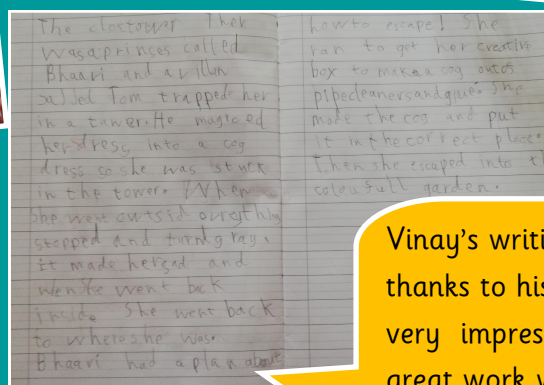 The clostower Ther
was a princes called
Bhaavi and a villan
called Tom trapped her
in a tawer. He magiced
her dress into a cog
dress so she was stuck
in the tower. When
she went outsid evrething
stopped and turnd gray.
it made her sad and
wen she went back
inside She went back
to where she was.
Bhaavi had a plan about
how to escape! She
ran to get her creativ
box to make a cog outof
pipecleaners and glue. She
made the cog and put
it in the correct place.
Then she escaped into th
colourfull garden.
Vinay's writi
thanks to his
very impres
great work w